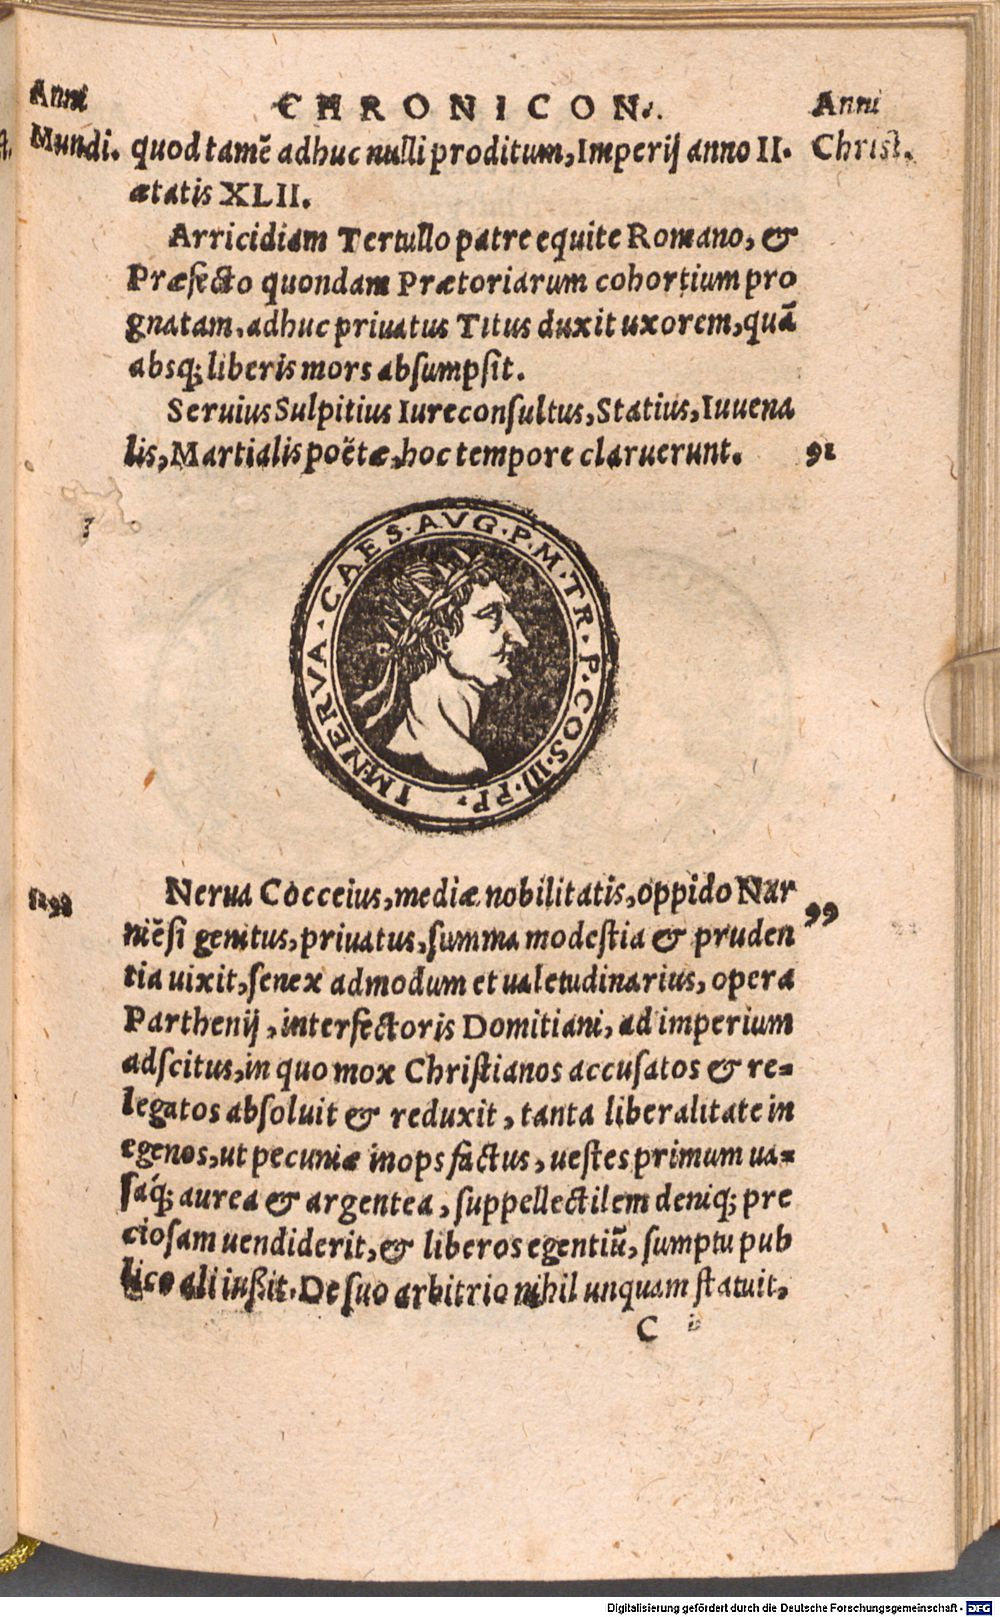 Anni CHRONICON. Anni
Mundi. quod tamē adhuc nulli proditum, Imperij anno II. Christ.
ætatis XLII.
Arricidiam Tertullo patre equite Romano, &
Præfecto quondam Prætoriarum cohortium pro
gnatam, adhuc priuatus Titus duxit uxorem, quā
absq; liberis mors absumpsit.
Seruius Sulpitius Iureconsultus, Statius, Iuuena
lis, Martialis poëtæ, hoc tempore claruerunt. 91
IM·NERVA·CAES·AVG·P·M·TR·P·COS·III·PP·
Nerua Cocceius, mediæ nobilitatis, oppido Nar
niēsi genitus, priuatus, summa modestia & pruden 99
tia uixit, senex admodum et ualetudinarius, opera
Parthenij, interfectoris Domitiani, ad imperium
adscitus, in quo mox Christianos accusatos & re=
legatos absoluit & reduxit, tanta liberalitate in
egenos, ut pecuniæ inops factus, uestes primum ua=
saq́; aurea & argentea, suppellectilem deniq; pre
ciosam uendiderit, & liberos egentiū, sumptu pub
lico ali iußit. De suo arbitrio nihil unquam statuit,
C
Digitalisierung gefördert durch die Deutsche Forschungsgemeinschaft - DFG